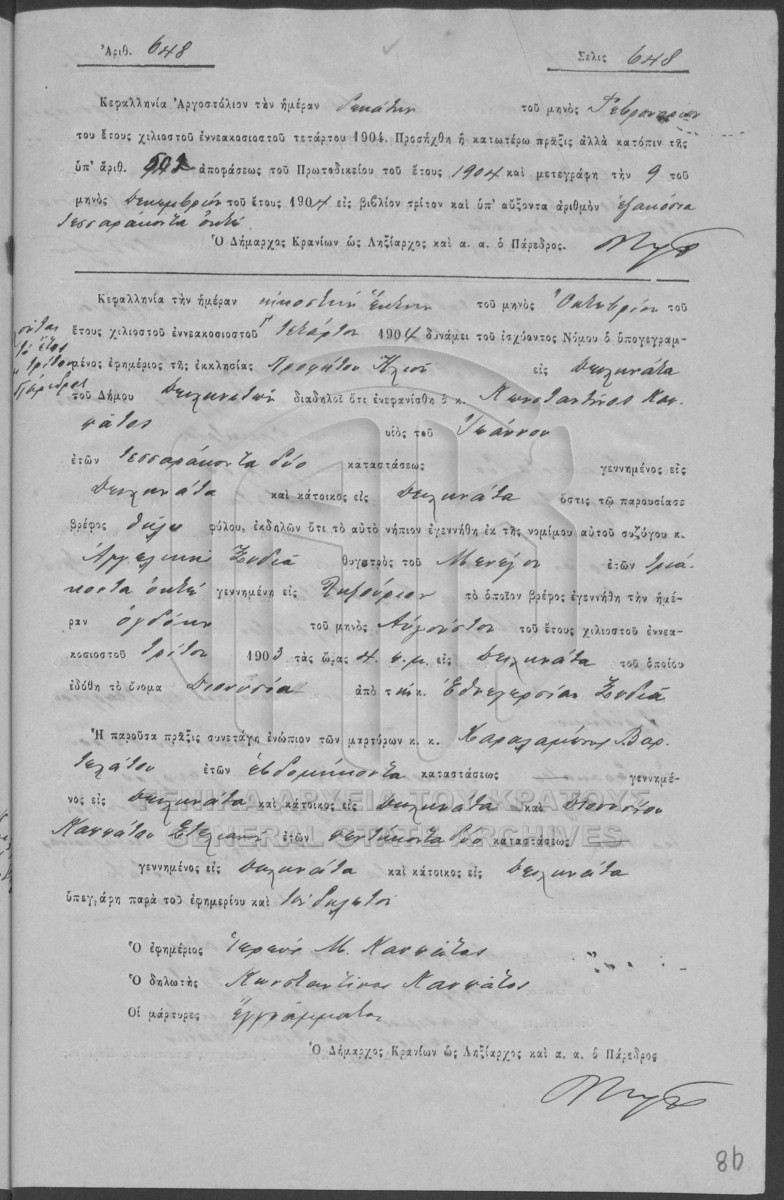 Ἀριθ. 648
Σελὶς 648
Κεφαλληνία Ἀργοστόλιον τὴν ἡμέραν δεκάτην τοῦ μηνὸς Φεβρουαρίου
του ἔτους χιλιοστοῦ ἐννεακοσιοστοῦ τετάρτου 1904. Προσήχθη ἡ κατωτέρω πρᾶξις ἀλλὰ κατόπιν τῆς
ὑπ' ἀριθ. ἀποφάσεως τοῦ Πρωτοδικείου τοῦ ἔτους 1904 καὶ μετεγράφη τὴν 9 τοῦ
μηνὸς Δεκεμβρίου τοῦ ἔτους 1904 εἰς βιβλίον τρίτον καὶ ὑπ' αὔξοντα ἀριθμὸν ἑξακόσια
τεσσαράκοντα ὀκτώ
Ὁ Δήμαρχος Κρανίων ὡς Ληξίαρχος καὶ α. α. ὁ Πάρεδρος.
Κεφαλληνία τὴν ἡμέραν εἰκοστὴν ἕκτην τοῦ μηνὸς Ὀκτωβρίου τοῦ
ἔτους χιλιοστοῦ ἐννεακοσιοστοῦ τετάρτου 1904 δυνάμει τοῦ ἰσχύοντος Νόμου ὁ ὑπογεγραμ-
μένος ἐφημέριος τῆς ἐκκλησίας Προφήτου Ἠλιοῦ εἰς Δειλινάτα
τοῦ Δήμου Δειλινατῶν διαδηλοῖ ὅτι ἐνεφανίσθη ὁ κ. Κωνσταντῖνος Καπ-
πάτος υἱὸς τοῦ Ἰωάννου
ἐτῶν τεσσαράκοντα δύο καταστάσεως γεννημένος εἰς
Δειλινάτα καὶ κάτοικος εἰς Δειλινάτα ὅστις τῷ παρουσίασε
βρέφος θήλυ φύλου, ἐκδηλῶν ὅτι τὸ αὐτὸ νήπιον ἐγεννήθη ἐκ τῆς νομίμου αὐτοῦ συζύγου κ.
Ἀγγελικῆς Ξυδιᾶ θυγατρὸς τοῦ Μενέγου ἐτῶν τριά-
κοντα ὀκτώ γεννημένη εἰς Ῥαζάτα τὸ ὁποῖον βρέφος ἐγεννήθη τὴν ἡμέ-
ραν ὀγδόην τοῦ μηνὸς Αὐγούστου τοῦ ἔτους χιλιοστοῦ ἐννεα-
κοσιοστοῦ τρίτου 1903 τὰς ὥρας 4 π.μ. εἰς Δειλινάτα τοῦ ὁποίου
ἐδόθη τὸ ὄνομα Διονυσία ἀπὸ τὴν κ. Ξυδιᾶ
Ἡ παροῦσα πρᾶξις συνετάγη ἐνώπιον τῶν μαρτύρων κ. κ. Χαραλάμπους Βαρ-
ἐτῶν ἑβδομήκοντα καταστάσεως — γεννημέ-
νος εἰς Δειλινάτα καὶ κάτοικος εἰς Δειλινάτα καὶ Διονυσίου
Καππάτου ἐτῶν πεντήκοντα δύο καταστάσεως —
γεννημένος εἰς Δειλινάτα καὶ κάτοικος εἰς Δειλινάτα
ὑπεγράφη παρὰ τοῦ ἐφημερίου καὶ τοῦ δηλωτοῦ
Ὁ ἐφημέριος Ἱερεὺς Μ. Καππάτος
Ὁ δηλωτὴς Κωνσταντῖνος Καππάτος
Οἱ μάρτυρες ἀγράμματοι
Ὁ Δήμαρχος Κρανίων ὡς Ληξίαρχος καὶ α. α. ὁ Πάρεδρος
ΓΕΝΙΚΑ ΑΡΧΕΙΑ ΤΟΥ ΚΡΑΤΟΥΣ
GENERAL STATE ARCHIVES